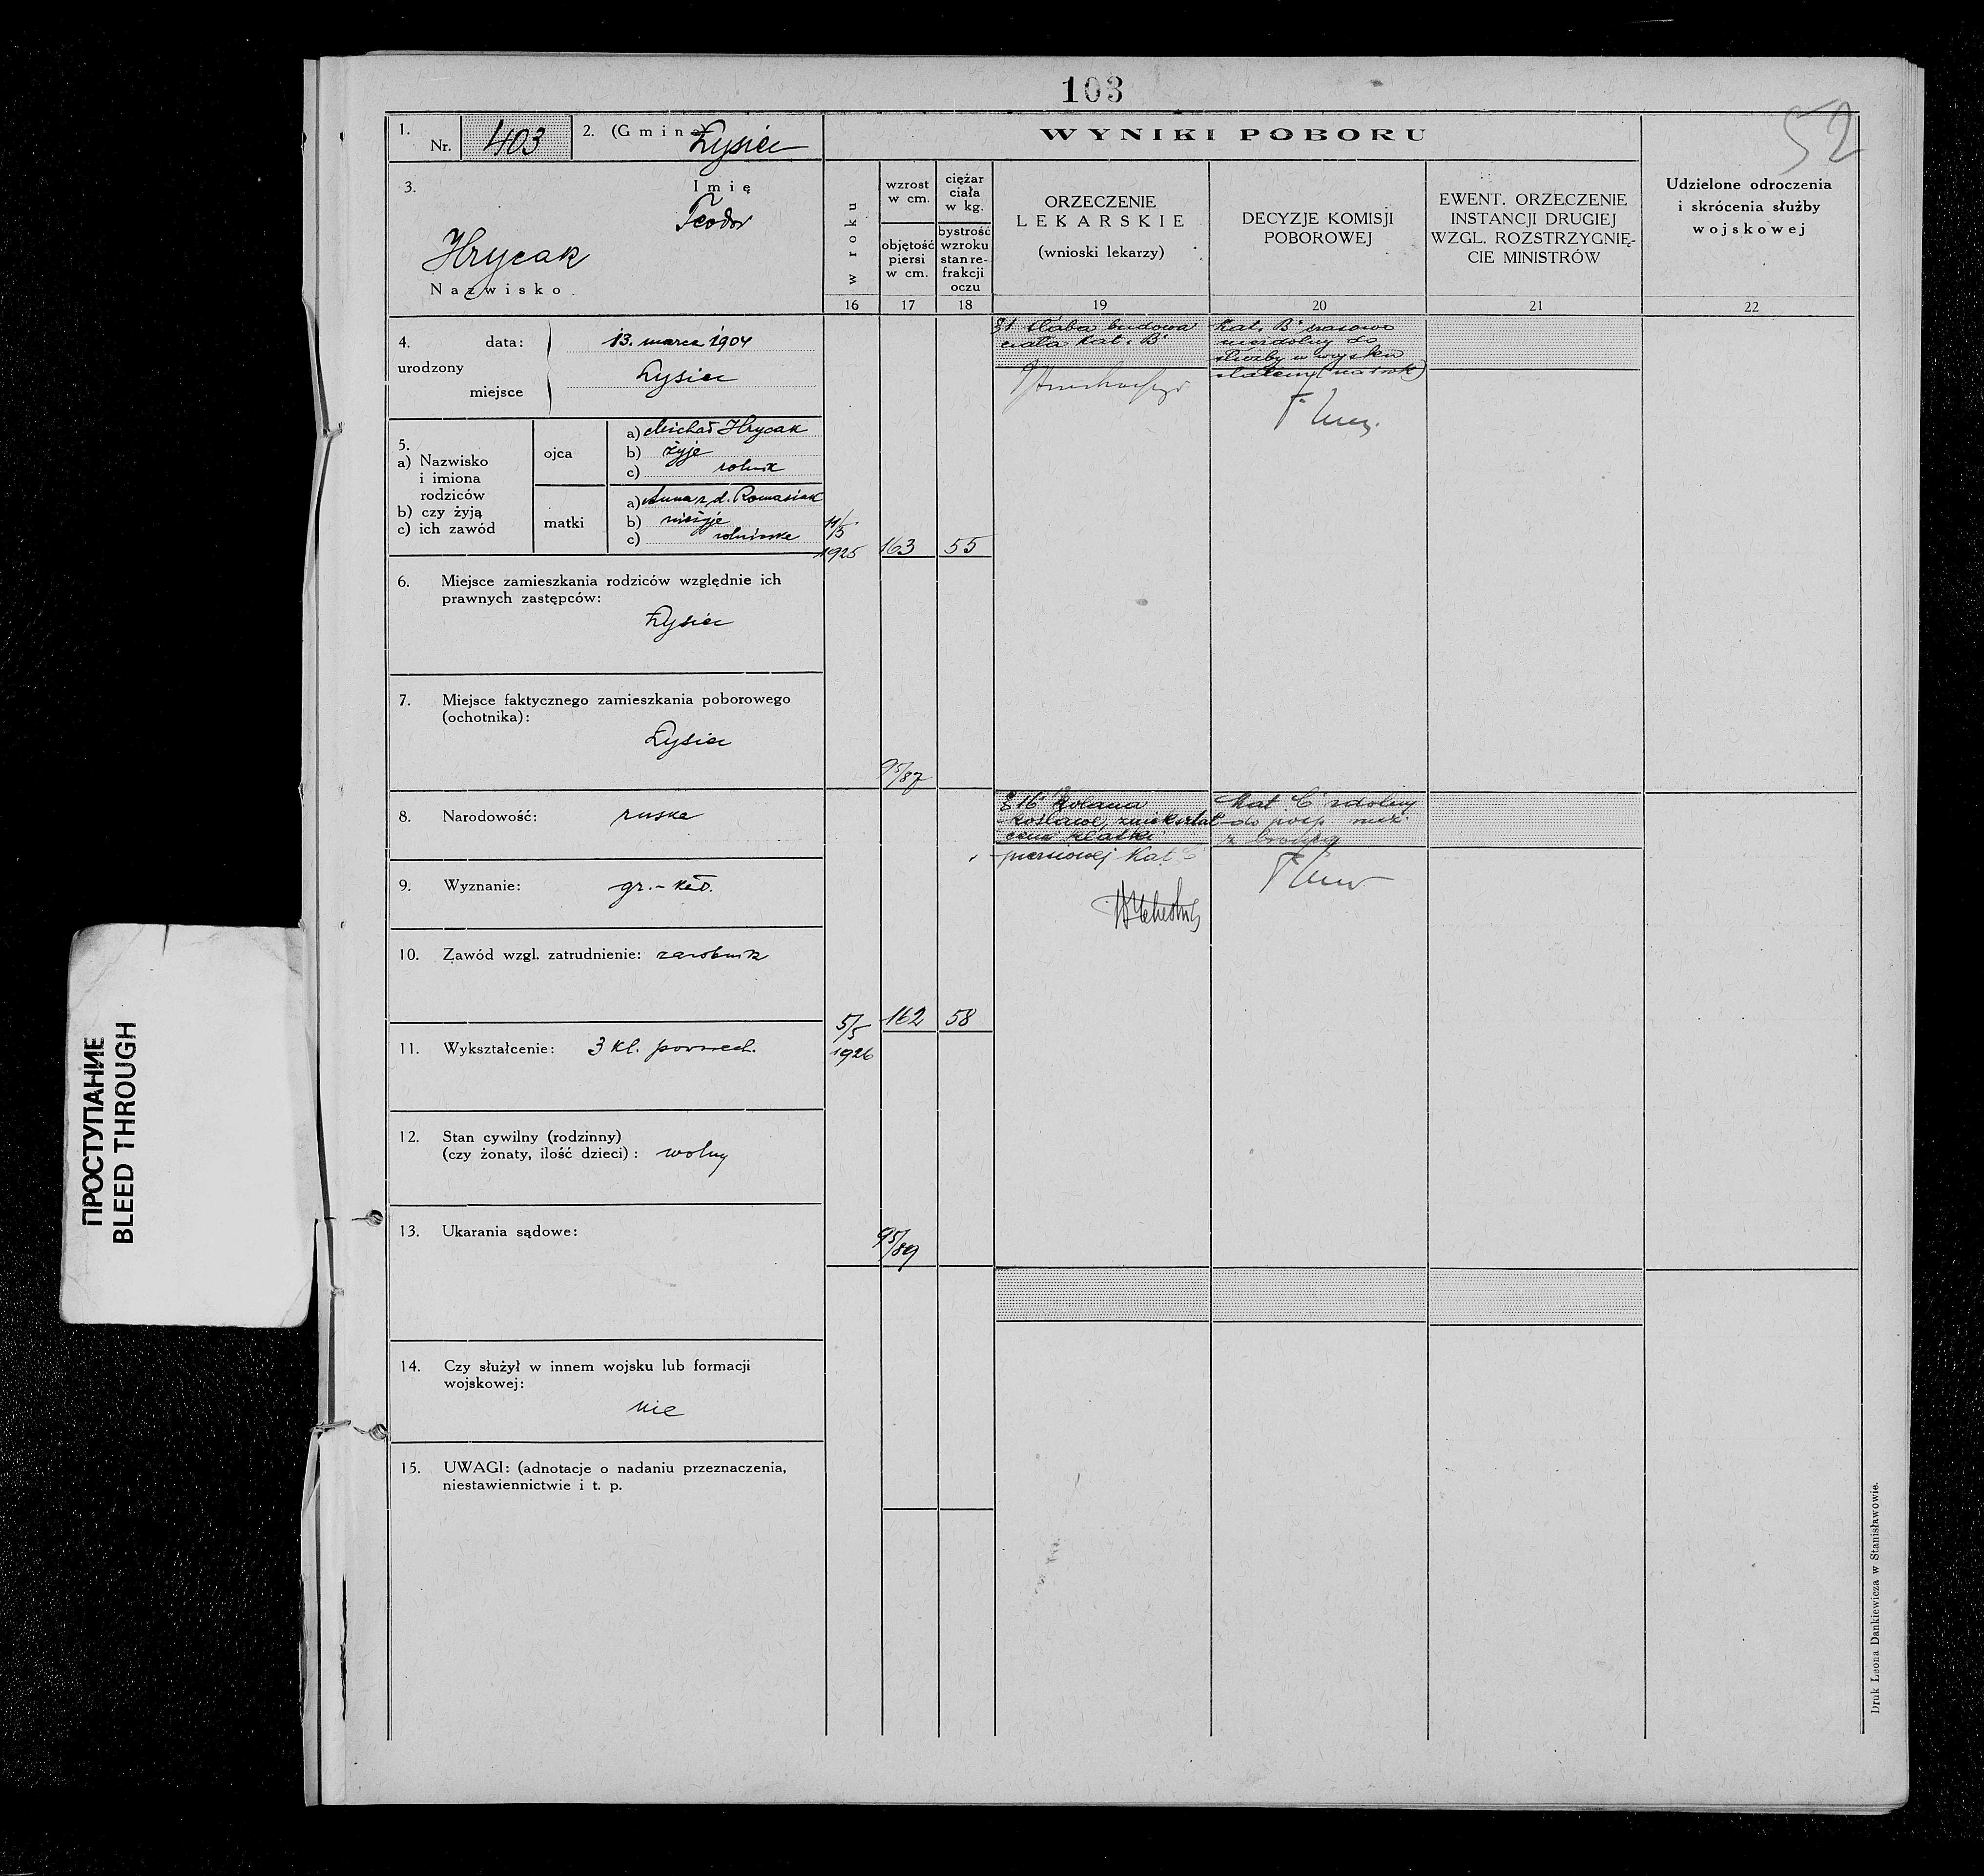 103
52
1.
Nr. 403
2. (Gmina) Łysiec
WYNIKI POBORU
3.
Imię
Teodor
Hrycak
Nazwisko
w roku
wzrost
w cm.
objętość
piersi
w cm.
ciężar
ciała
w kg.
bystrość
wzroku
stan re-
frakcji
oczu
ORZECZENIE
LEKARSKIE
(wnioski lekarzy)
DECYZJE KOMISJI
POBOROWEJ
EWENT. ORZECZENIE
INSTANCJI DRUGIEJ
WZGL. ROZSTRZYGNIĘ-
CIE MINISTRÓW
Udzielone odroczenia
i skrócenia służby
wojskowej
16 17 18 19 20 21 22
4.
urodzony
data: 13. marca 1904
miejsce Łysiec
5.
a) Nazwisko
i imiona
rodziców
b) czy żyją
c) ich zawód
ojca
a) Michał Hrycak
b) żyje
c) rolnik
matki
a) Anna z d. Romasiak
b) nieżyje
c)
11/5
1925 163 55
§1 słaba budowa
ciała kat. B
Kat. B czasowo
niezdolny do
służby w wojsku
stałem (na rok)
6. Miejsce zamieszkania rodziców względnie ich
prawnych zastępców:
Łysiec
7. Miejsce faktycznego zamieszkania poborowego
(ochotnika):
Łysiec
95/87
8. Narodowość: ruska
§ 16 kolana
koślawe, zniekształ-
cenie klatki
piersiowej Kat C
Kat C zdolny
do posp. rusz.
z bronią
9. Wyznanie: gr.-kat.
10. Zawód wzgl. zatrudnienie: zarobnik
5/5
1926
162 58
11. Wykształcenie: 3 kl. powszech.
12. Stan cywilny (rodzinny)
(czy żonaty, ilość dzieci): wolny
13. Ukarania sądowe:
95/89
14. Czy służył w innem wojsku lub formacji
wojskowej:
nie
15. UWAGI: (adnotacje o nadaniu przeznaczenia,
niestawiennictwie i t. p.
Druk Leona Dankiewicza w Stanisławowie.
ПРОСТУПАНИЕ
BLEED THROUGH